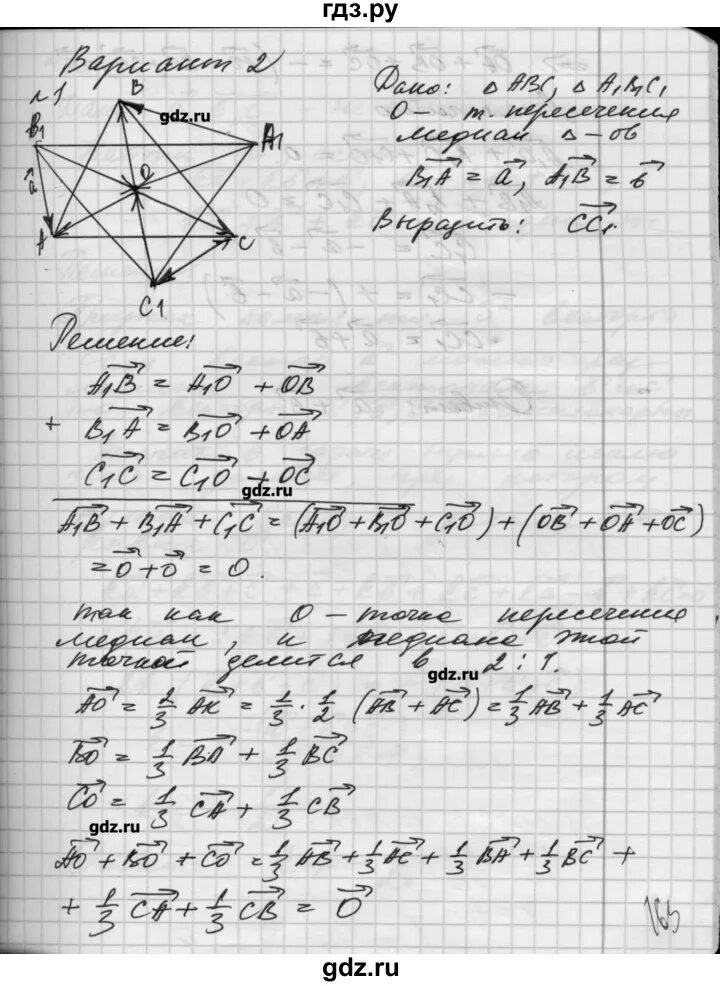 гдз.ру
Вариант 2
№1
B
gdz.ru
B₁
A₁
O
a⃗
A
C
C1
Дано: △ ABC, △ A₁B₁C₁
O – т. пересечения
медиан △–ов
B₁A⃗ = a⃗, A₁B⃗ = в⃗
Выразить: CC₁⃗
Решение:
A₁B⃗ = A₁O⃗ + OB⃗
+ B₁A⃗ = B₁O⃗ + OA⃗
C₁C⃗ = C₁O⃗ + OC⃗
gdz.ru
A₁B⃗ + B₁A⃗ + C₁C⃗ = (A₁O⃗ + B₁O⃗ + C₁O⃗) + (OB⃗ + OA⃗ + OC⃗)
= O⃗ + O⃗ = O.
так как O – точка пересечения
медиан, и медиана этой
точкой делится в 2 : 1.
gdz.ru
AO⃗ = 2/3 AK⃗ = 2/3 · 1/2 (AB⃗ + AC⃗) = 1/3 AB⃗ + 1/3 AC⃗
BO⃗ = 1/3 BA⃗ + 1/3 BC⃗
CO⃗ = 1/3 CA⃗ + 1/3 CB⃗
gdz.ru
AO⃗ + BO⃗ + CO⃗ = 1/3 AB⃗ + 1/3 AC⃗ + 1/3 BA⃗ + 1/3 BC⃗ +
+ 1/3 CA⃗ + 1/3 CB⃗ = O⃗
165
gdz.ru